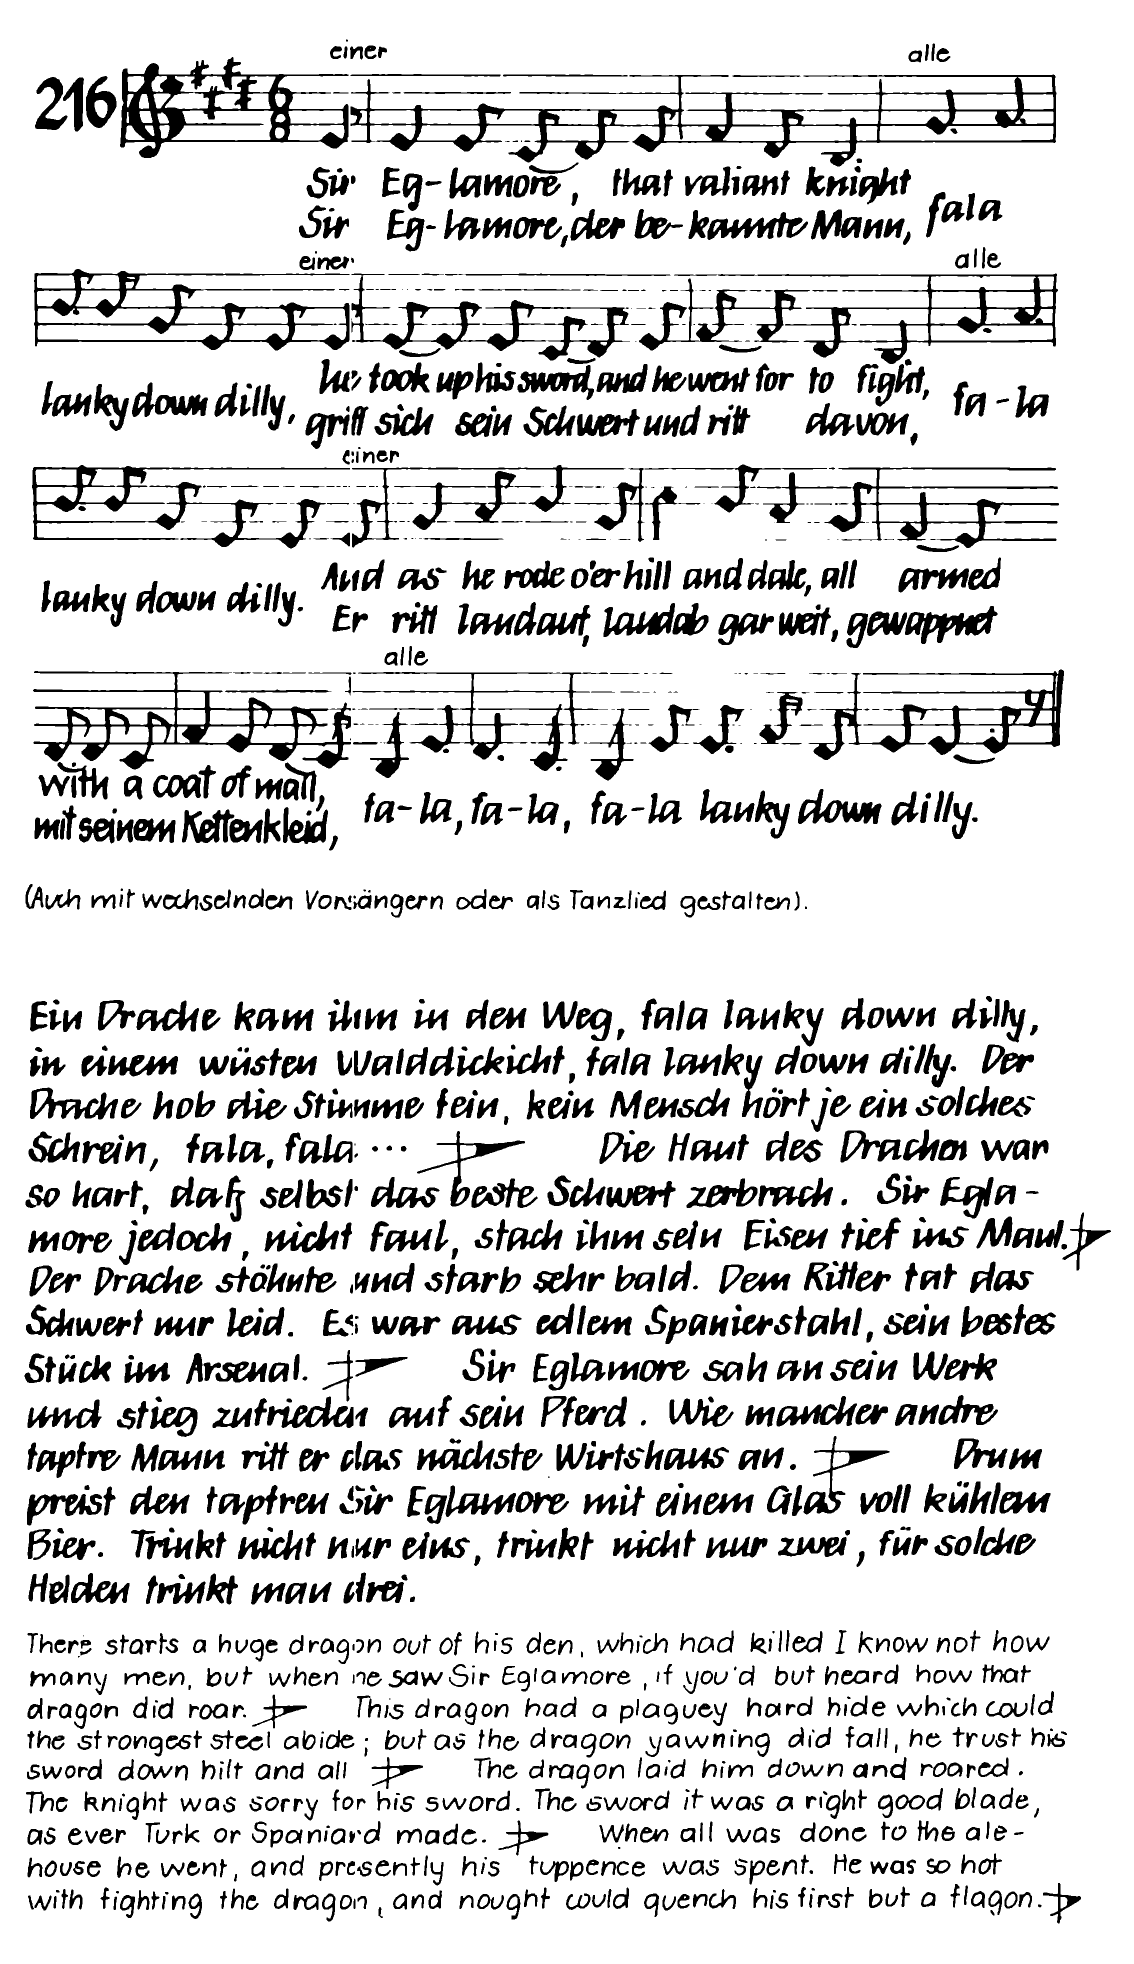 einer alle
216 6 8
Sir Eg-lamore, that valiant knight
Sir Eg-lamore, der be-kannte Mann, fala
einer alle
lanky down dilly, he took up his sword, and he went for to fight, fa-la
griff sich sein Schwert und ritt davon,
einer
lanky down dilly. And as he rode o'er hill and dale, all armed
Er ritt landauf, landab gar weit, gewappnet
alle
with a coat of mail, fa-la, fa-la, fa-la lanky down dilly.
mit seinem Kettenkleid,
(Auch mit wechselnden Vorsängern oder als Tanzlied gestalten).
Ein Drache kam ihm in den Weg, fala lanky down dilly,
in einem wüsten Walddickicht, fala lanky down dilly. Der
Drache hob die Stimme fein, kein Mensch hört je ein solches
Schrein, fala, fala ... Die Haut des Drachen war
so hart, daß selbst das beste Schwert zerbrach. Sir Egla-
more jedoch, nicht faul, stach ihm sein Eisen tief ins Maul.
Der Drache stöhnte und starb sehr bald. Dem Ritter tat das
Schwert nur leid. Es war aus edlem Spanierstahl, sein bestes
Stück im Arsenal. Sir Eglamore sah an sein Werk
und stieg zufrieden auf sein Pferd. Wie mancher andre
tapfre Mann ritt er das nächste Wirtshaus an. Drum
preist den tapfren Sir Eglamore mit einem Glas voll kühlem
Bier. Trinkt nicht nur eins, trinkt nicht nur zwei, für solche
Helden trinkt man drei.
There starts a huge dragon out of his den, which had killed I know not how
many men, but when he saw Sir Eglamore, if you'd but heard how that
dragon did roar. This dragon had a plaguey hard hide which could
the strongest steel abide; but as the dragon yawning did fall, he trust his
sword down hilt and all The dragon laid him down and roared.
The knight was sorry for his sword. The sword it was a right good blade,
as ever Turk or Spaniard made. When all was done to the ale-
house he went, and presently his tuppence was spent. He was so hot
with fighting the dragon, and nought could quench his first but a flagon.